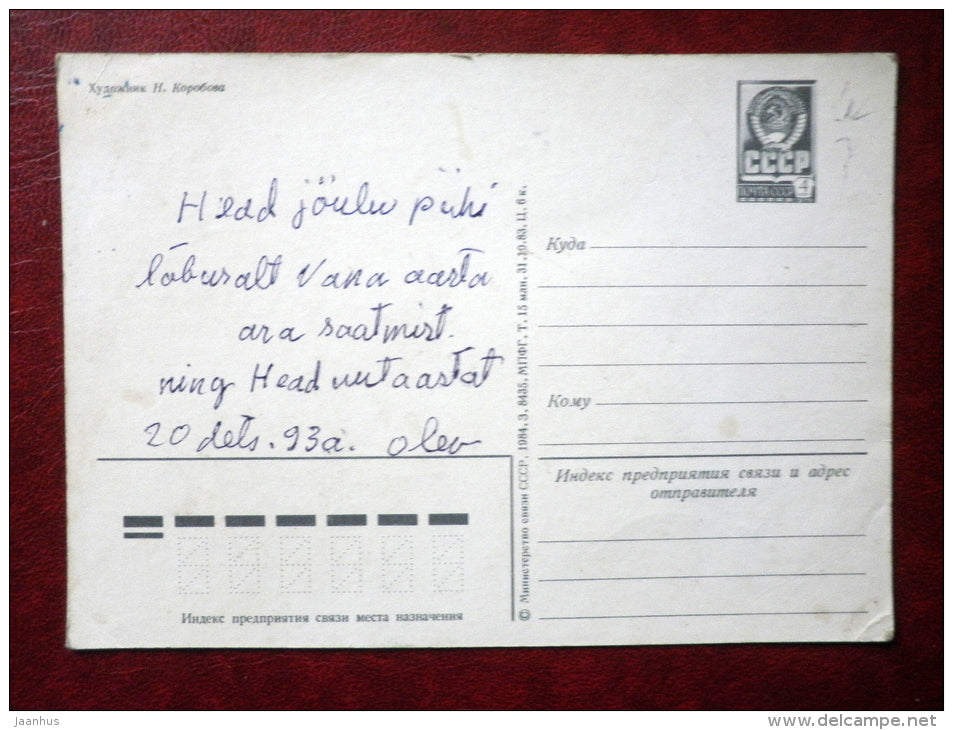 Художник Н. Коробова
СССР
ПОЧТА СССР 4
Head jõulu pühi
lõbusalt Vana aasta
ara saatmist.
ning Head uutaastat
20 dets. 93a. Olev
Куда
Кому
Индекс предприятия связи и адрес
отправителя
© Министерство связи СССР, 1984. З. 8435. МПФГ. Т. 15 млн. 31.10.83. Ц. 6 к.
Индекс предприятия связи места назначения
Jaanhus
www.delcampe.net